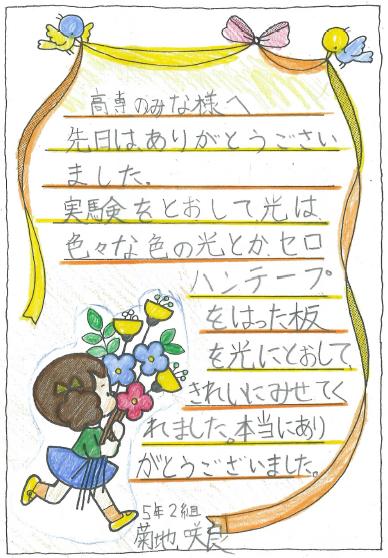 高専のみな様へ
先日は、ありがとうござい
ました。
実験をとおして、光は、
色々な色の光とか、セロ
ハンテープ
をはった板
を光にとおして、
きれいにみせてく
れました。本当にあり
がとうございました。
5年2組
菊地 咲良